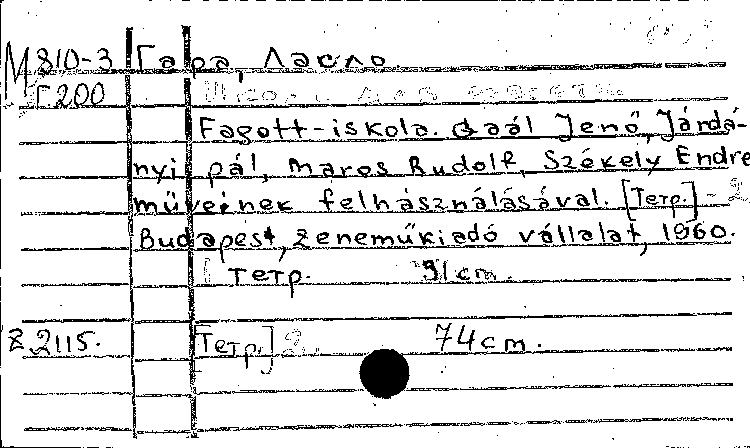 М810-3 Гара, Ласло.
Г200
Fagott-iskola. Gaál Jenő, Járdá-
nyi pál, Maros Rudolf, Székely Endre
műveinek felhásználásával. [Тетр.] - 2
Budapest, zeneműkiadó vállalat, 1960.
1 Тетр. 91cm.
Z.2115. [Тетр.] 2. 74cm.